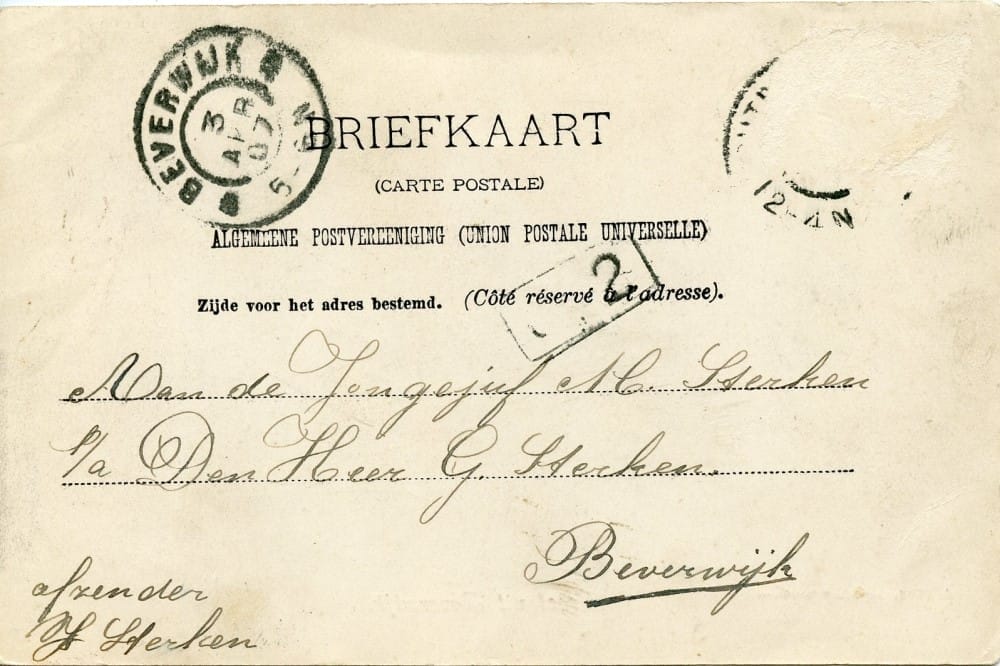 BEVERWIJK
3
APR
07
5-6N
BRIEFKAART
(CARTE POSTALE)
12-4N
ALGEMEENE POSTVEREENIGING (UNION POSTALE UNIVERSELLE)
2
Zijde voor het adres bestemd. (Côté réservé à l'adresse).
Aan de Jongejuf M. Sterken
p/a Den Heer G. Sterken.
Beverwijk
afzender
Sterken